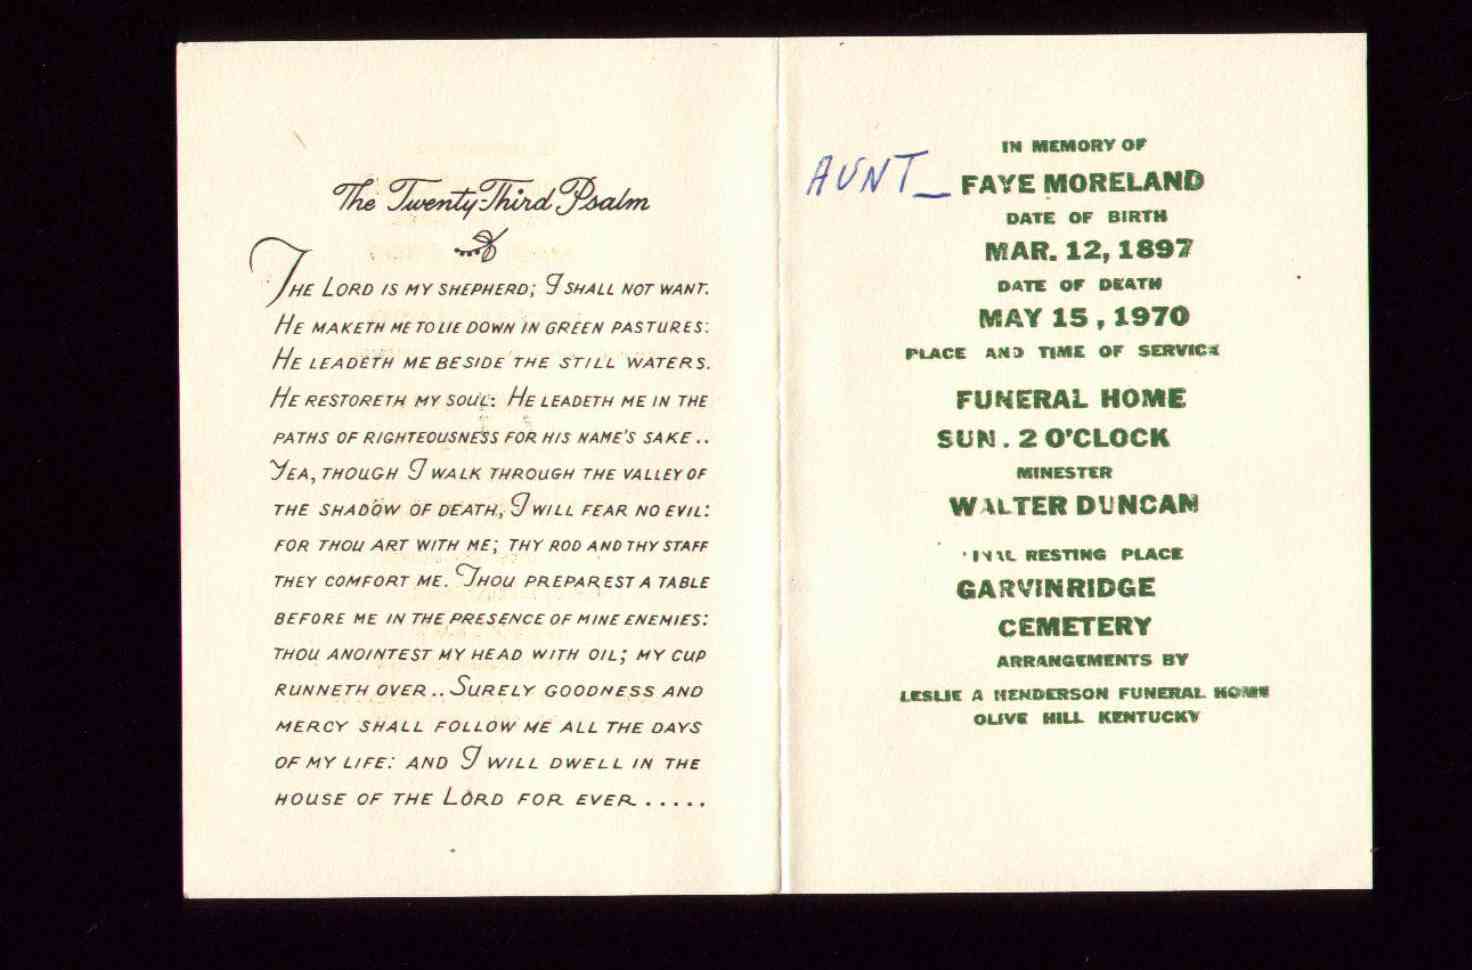 The Twenty-Third Psalm
THE LORD IS MY SHEPHERD; I SHALL NOT WANT.
HE MAKETH ME TO LIE DOWN IN GREEN PASTURES:
HE LEADETH ME BESIDE THE STILL WATERS.
HE RESTORETH MY SOUL: HE LEADETH ME IN THE
PATHS OF RIGHTEOUSNESS FOR HIS NAME'S SAKE..
YEA, THOUGH I WALK THROUGH THE VALLEY OF
THE SHADOW OF DEATH, I WILL FEAR NO EVIL:
FOR THOU ART WITH ME; THY ROD AND THY STAFF
THEY COMFORT ME. THOU PREPAREST A TABLE
BEFORE ME IN THE PRESENCE OF MINE ENEMIES:
THOU ANOINTEST MY HEAD WITH OIL; MY CUP
RUNNETH OVER.. SURELY GOODNESS AND
MERCY SHALL FOLLOW ME ALL THE DAYS
OF MY LIFE: AND I WILL DWELL IN THE
HOUSE OF THE LORD FOR EVER.....
IN MEMORY OF
AUNT_ FAYE MORELAND
DATE OF BIRTH
MAR. 12, 1897
DATE OF DEATH
MAY 15, 1970
PLACE AND TIME OF SERVICE
FUNERAL HOME
SUN. 2 O'CLOCK
MINESTER
WALTER DUNCAN
RESTING PLACE
GARVINRIDGE
CEMETERY
ARRANGEMENTS BY
LESLIE A HENDERSON FUNERAL HOME
OLIVE HILL KENTUCKY